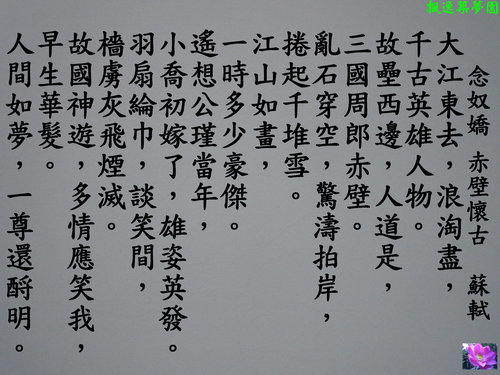 楓迷築夢園
念奴嬌 赤壁懷古 蘇軾
大江東去，浪淘盡，
千古英雄人物。
故壘西邊，人道是，
三國周郎赤壁。
亂石穿空，驚濤拍岸，
捲起千堆雪。
江山如畫，
一時多少豪傑。
遙想公瑾當年，
小喬初嫁了，雄姿英發。
羽扇綸巾，談笑間，
檣虜灰飛煙滅。
故國神遊，多情應笑我，
早生華髮。
人間如夢，一尊還酹明。